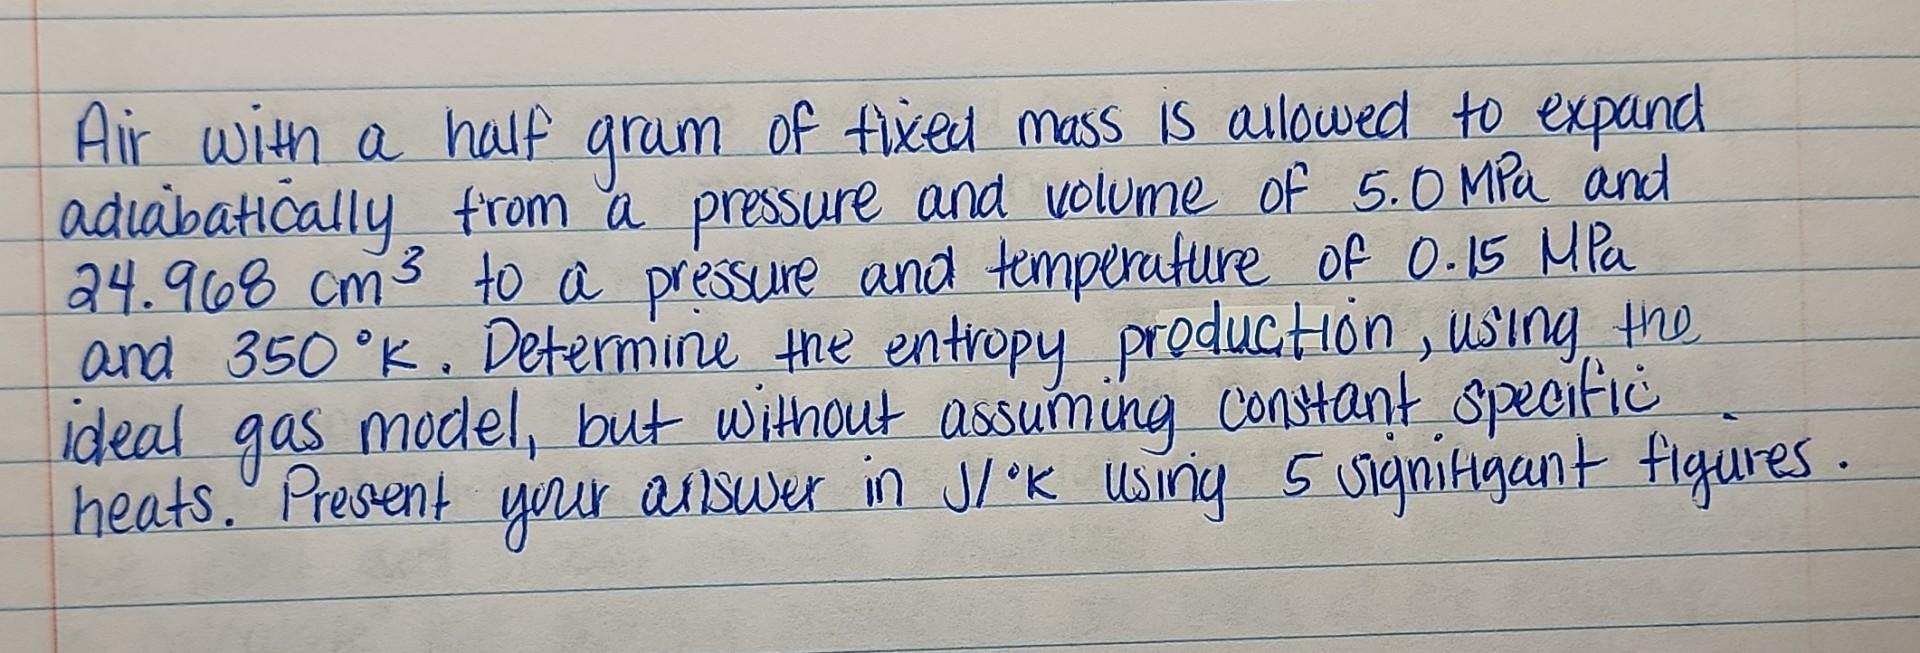 Air with a half gram of fixed mass is allowed to expand
adiabatically from a pressure and volume of 5.0 MPa and
24.968 cm³ to a pressure and temperature of 0.15 MPa
and 350 °K. Determine the entropy production, using the
ideal gas model, but without assuming constant specific
heats. Present your answer in J/°K using 5 signifigant figures.